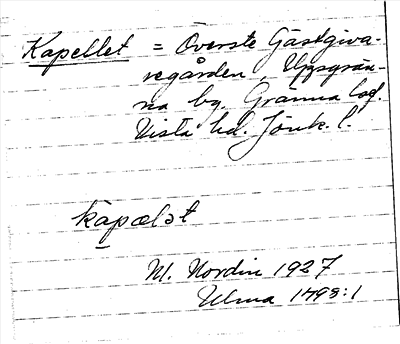 Kapellet = Överste Gästgiva-
regården, Uppgrän-
na by. Gränna lad.
Vista hd. Jönk. l.
kapalət
M. Nordin 1927
Ulma 1498:1